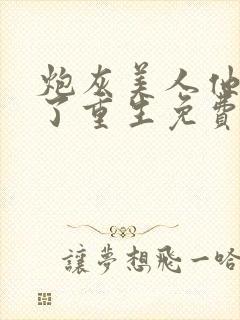 炮灰美人他
了重生免費
讓夢想飛一哈